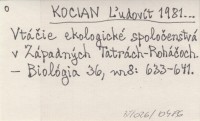 o
KOCIAN Ľudovít 1981...
Vtáčie ekologické spoločenstvá
v Západných Tatrách-Roháčoch.
- Biológia 36, no8: 633-641.